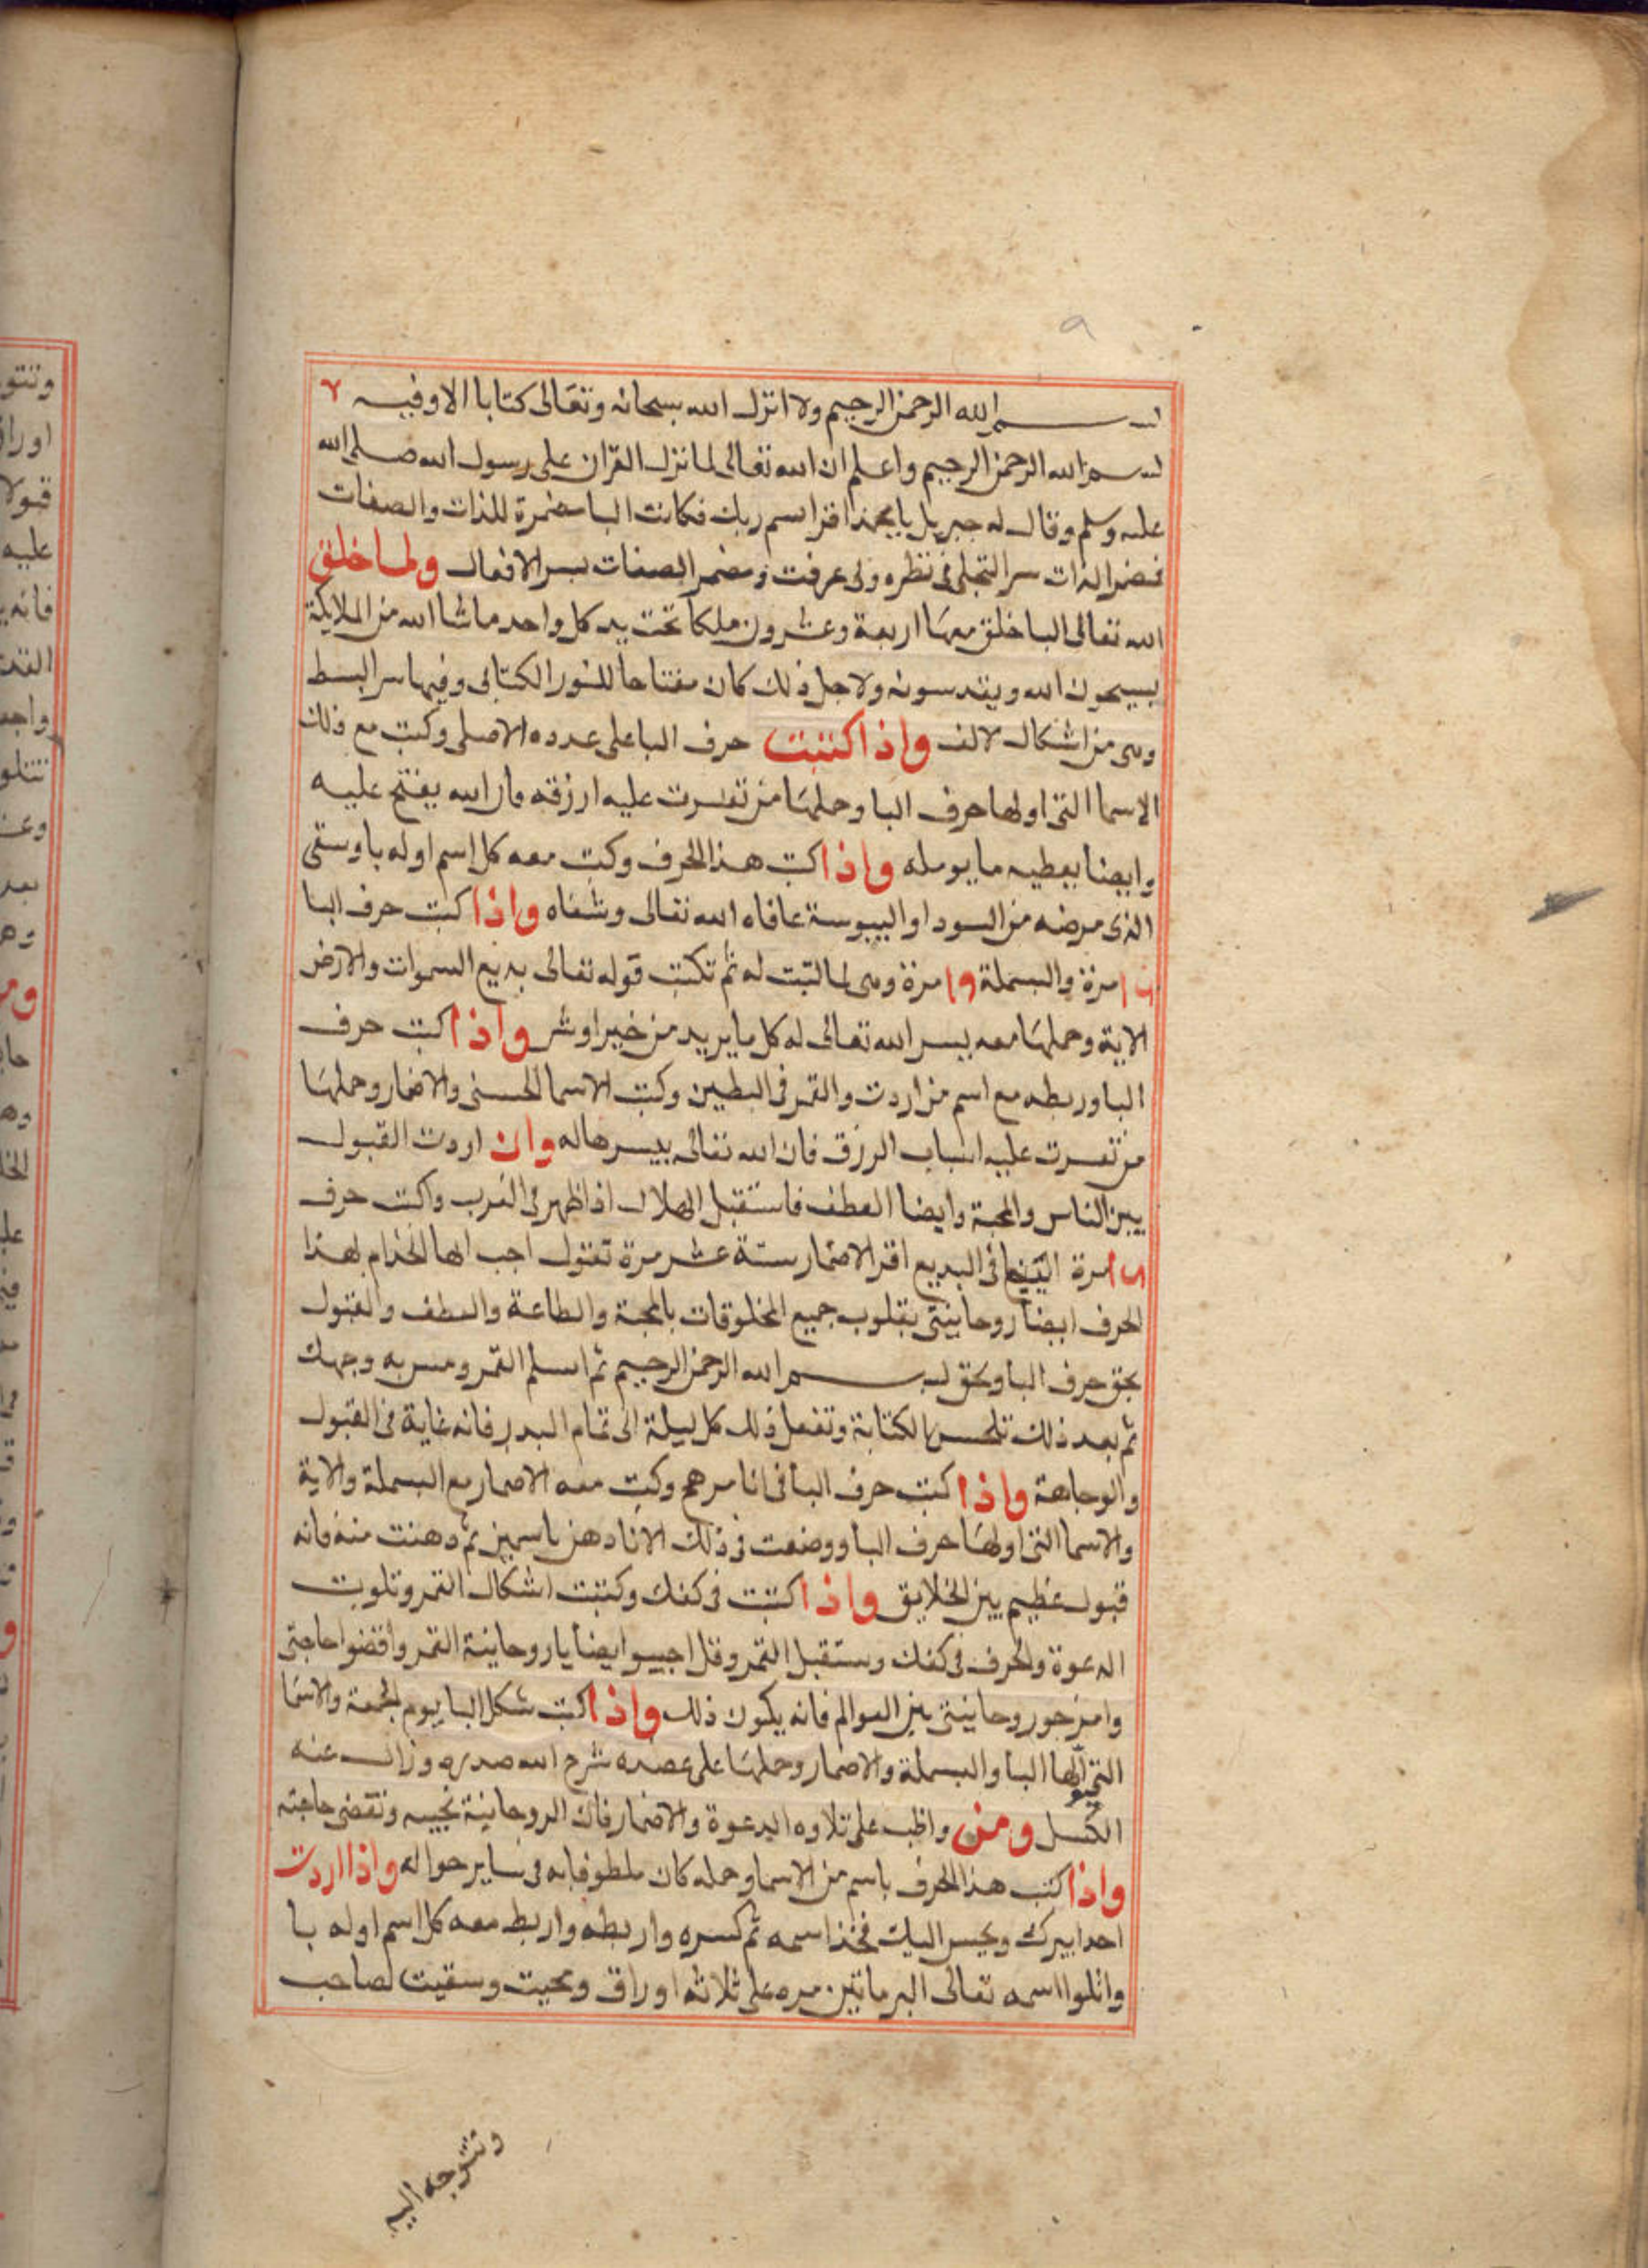 بسم الله الرحمن الرحيم ولا انزل الله سبحانه وتعالى كتابا الا وفيه ٢
بسم الله الرحمن الرحيم واعلم ان الله تعالى لما نزل القران على رسول الله صلى الله
عليه وسلم وقال له جبريل يا محمد اقرا باسم ربك فكانت البا مضمرة للذات والصفات
فمضمر الذات سر التجلى فى نظره وبى عرفت ومضمر الصفات بسر الافعال ولما خلق
الله تعالى البا خلق معها اربعة وعشرون ملكا تحت يد كل واحد ماشا الله من الملايكة
يسبحون الله ويقدسونه ولاجل ذلك كان مفتاحا للنور الكتابى وفيها سر البسط
وهى من اشكال الالف واذا كتبت حرف البا على عدده الاصلى وكتبت مع ذلك
الاسما التى اولها حرف البا وحملها من تعسرت عليه ارزقه فان الله يفتح عليه
وايضا يعطيه ما يومله واذا كتبت هذا الحرف وكتبت معه كل اسم اوله با وسقى
الذى مرضه من السودا او اليبوسة عافاه الله تعالى وشفاه واذا كتبت حرف البا
مرة والبسملة مرة وهى لما كتبت له ثم تكتب قوله تعالى بديع السموات والارض
الاية وحملها معه يسر الله تعالى له كل ما يريد من خير او شر واذا كتبت حرف
البا وربطه مع اسم من اردت والقمر فى البطين وكتبت الاسما الحسنى والاضمار وحملها
من تعسرت عليه اسباب الرزق فان الله تعالى ييسرها له وان اردت القبول
بين الناس والمحبة وايضا العطف فاستقبل الهلال اذا ظهر فى الغرب واكتب حرف
مرة فى البديع اقر الاضمار ستة عشر مرة تقول اجب ايها الخدام لهذا
الحرف ايضا روحانيتى بقلوب جميع المخلوقات بالمحبة والطاعة والعطف والقبول
بحق حرف البا وبحق بسم الله الرحمن الرحيم ثم اسلم القمر ومس به وجهك
ثم بعد ذلك تلحس الكتابة وتفعل ذلك كل ليلة الى تمام البدر فانه غاية فى القبول
والوجاهة واذا كتبت حرف البا فى انا مرهم وكتبت معه الاضمار مع البسملة والاية
والاسما التى اولها حرف البا ووضعت فى ذلك الانا دهن ياسمين ثم دهنت منه فانه
قبول عظيم بين الخلايق واذا كتبت فى كفك وكتبت اشكال القمر وتلوت
الدعوة والحرف فى كفك وستقبل القمر وقل اجيبوا ايضا يا روحانية القمر واقضوا حاجتى
وامزجو روحانيتى بين العوالم فانه يكون ذلك واذا كتبت شكل البا يوم الجمعة والاسما
التى اولها البا والبسملة والاضمار وحملها على عضده شرح الله صدره وزال عنه
الكسل ومن واظب على تلاوه الدعوة والاضمار فان الروحانية تجيبه وتقضى حاجته
واذا كتب هذا الحرف باسم من الاسما وحمله كان ملطوفا به فى ساير حواله واذا اردت
احدا يبرك ويحسن اليك فخذ اسمه ثم كسره واربطه واربط معه كل اسم اوله با
واتلوا اسمه تعالى البر ماتين مره على ثلاثه اوراق ومحيت وسقيت لصاحب
وتتوجه اليه